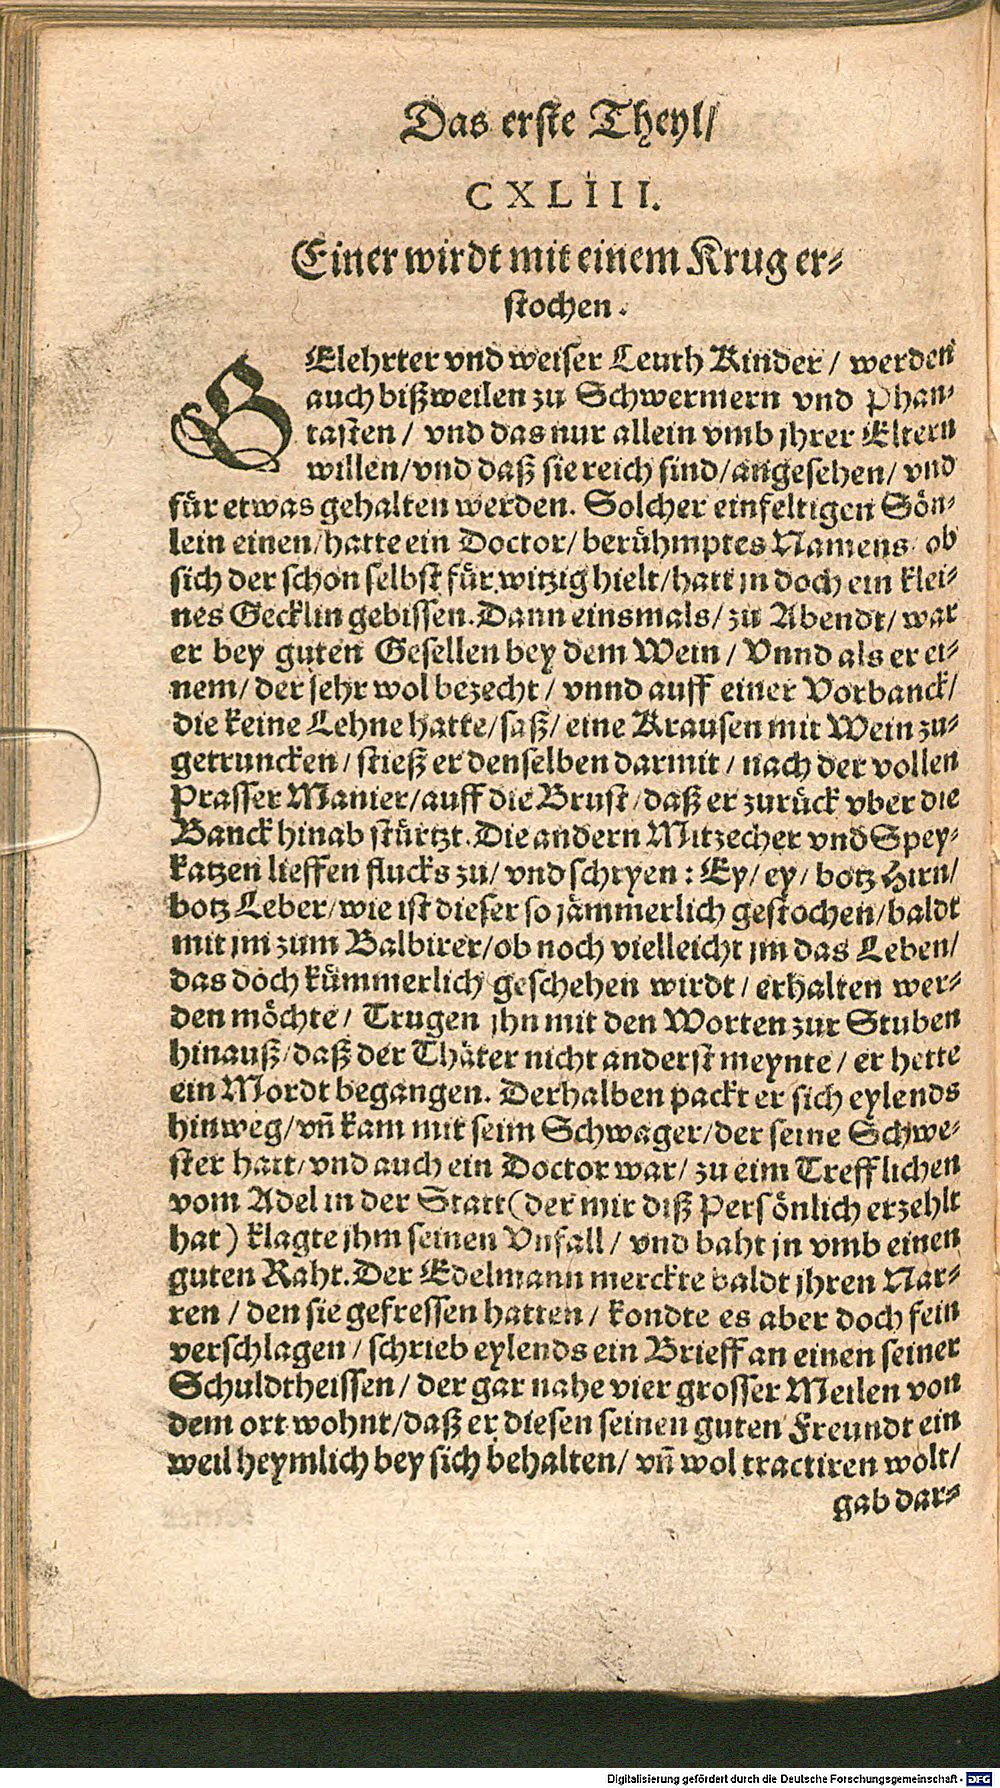 Das erste Theyl/
CXLIII.
Einer wirdt mit einem Krug er-
stochen.
GElehrter vnd weiser Leuth Kinder / werden
auch bißweilen zu Schwermern vnd Phan-
tasten / vnd das nur allein vmb jhrer Eltern
willen/vnd daß sie reich sind/angesehen/ vnd
für etwas gehalten werden. Solcher einfeltigen Sön-
lein einen/hatte ein Doctor/ berühmptes Namens/ ob
sich der schon selbst für witzig hielt/hatt jn doch ein klei-
nes Gecklin gebissen. Dann einsmals/ zu Abendt/ war
er bey guten Gesellen bey dem Wein / Vnnd als er ei-
nem/ der sehr wol bezecht / vnnd auff einer Vorbanck/
die keine Lehne hatte/saß/ eine Krausen mit Wein zu-
getruncken / stieß er denselben darmit / nach der vollen
Prasser Manier/auff die Brust/daß er zurück vber die
Banck hinab stürtzt. Die andern Mitzecher vnd Spey-
katzen lieffen flucks zu/ vnd schryen : Ey/ ey/ botz Hirn/
botz Leber/wie ist dieser so jämmerlich gestochen/baldt
mit jm zum Balbirer/ob noch vielleicht jm das Leben/
das doch kümmerlich geschehen wirdt / erhalten wer-
den möchte/ Trugen jhn mit den Worten zur Stuben
hinauß/daß der Thäter nicht anderst meynte / er hette
ein Mordt begangen. Derhalben packt er sich eylends
hinweg/vn̄ kam mit seim Schwager/der seine Schwe-
ster hatt/vnd auch ein Doctor war/ zu eim Trefflichen
vom Adel in der Statt (der mir diß Persönlich erzehlt
hat) klagte jhm seinen Vnfall / vnd baht jn vmb einen
guten Raht. Der Edelmann merckte baldt jhren Nar-
ren / den sie gefressen hatten / kondte es aber doch fein
verschlagen / schrieb eylends ein Brieff an einen seiner
Schuldtheissen / der gar nahe vier grosser Meilen von
dem ort wohnt/daß er diesen seinen guten Freundt ein
weil heymlich bey sich behalten/ vn̄ wol tractiren wolt/
gab dar-
Digitalisierung gefördert durch die Deutsche Forschungsgemeinschaft - DFG